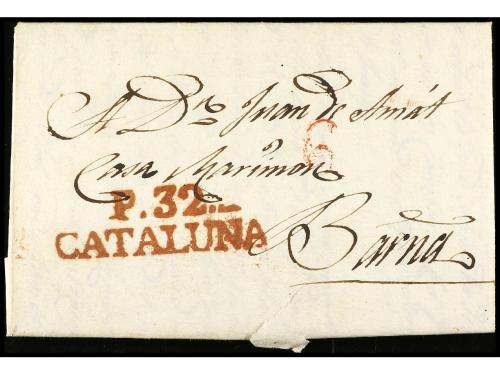 A Dⁿ Juan de Amát
6
Casa Marimon
P.32..
CATALUÑA
Barnᵃ